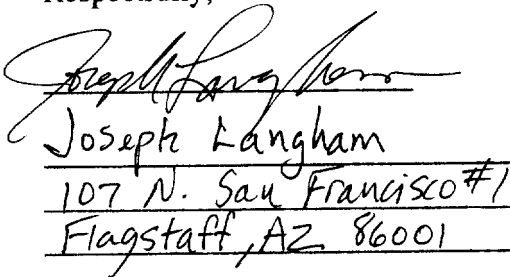 Respectfully,
Joseph Langham
Joseph Langham
107 N. San Francisco #1
Flagstaff, AZ 86001